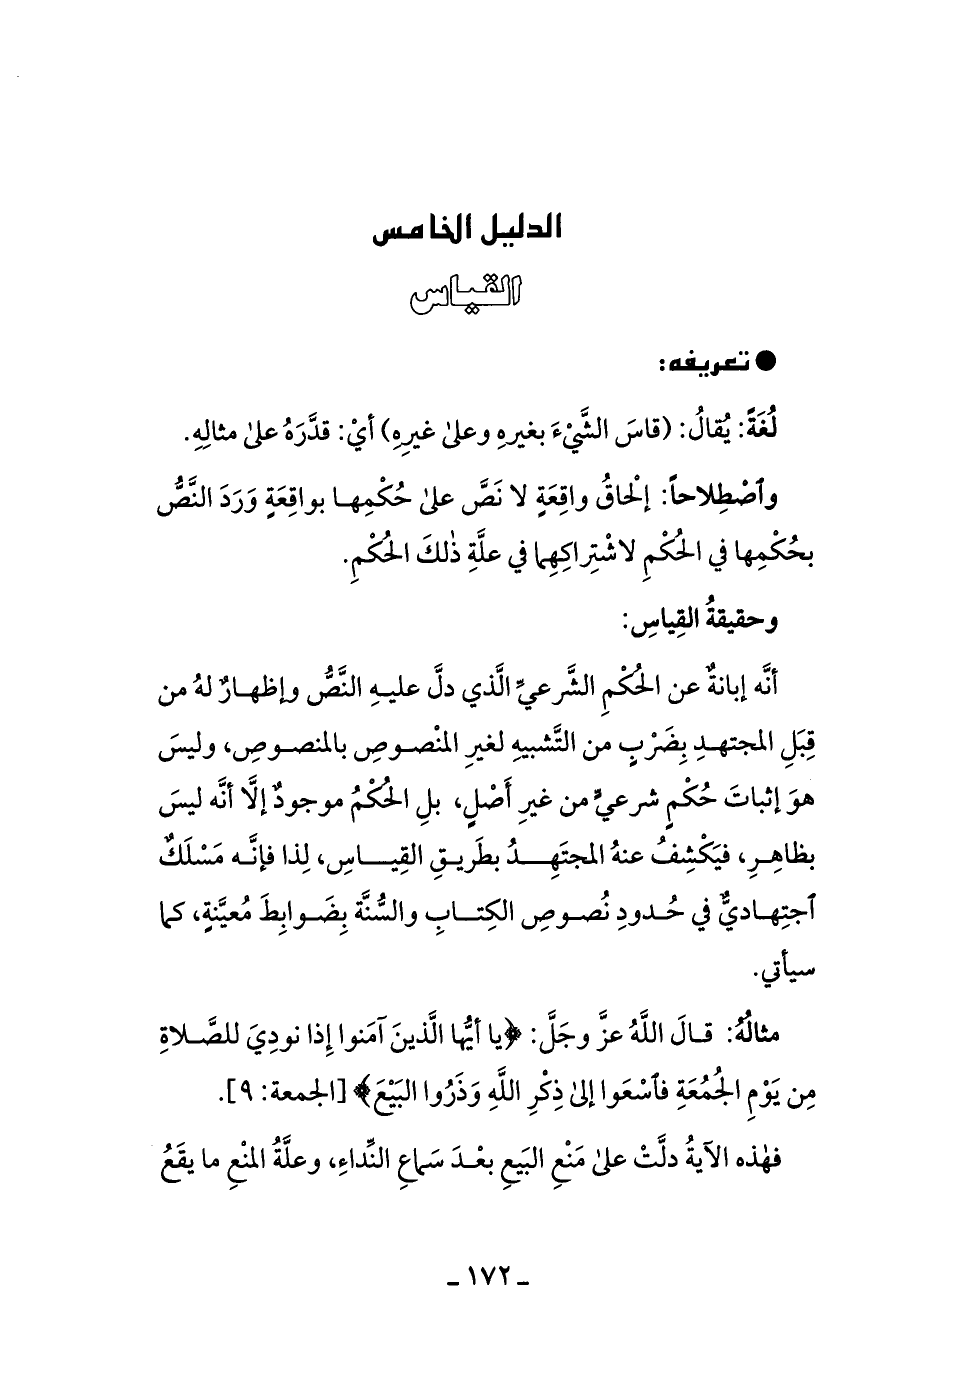 الدليل الخامس
القياس
● تعريفه:
لُغَةً: يُقالُ: (قاسَ الشَّيْءَ بغيرِهِ وعلىٰ غيرِهِ) أيْ: قدَّرَهُ علىٰ مثالِهِ.
وٱصْطِلاحاً: إلْحاقُ واقِعَةٍ لا نَصَّ علىٰ حُكْمِهـا بواقِعَةٍ وَرَدَ النَّصُّ
بحُكْمِها في الحُكْمِ لاشْتِراكِهِما في علَّةِ ذٰلكَ الحُكْمِ.
وحقيقةُ القِياسِ:
أنَّه إبانةٌ عن الحُكْمِ الشَّرعيِّ الَّذي دلَّ عليـهِ النَّصُّ وإظهـارٌ لهُ من
قِبَلِ المجتهـدِ بِضَرْبٍ من التَّشبيهِ لغيرِ المنْصـوصِ بالمنصـوصِ، وليسَ
هوَ إثباتَ حُكْمٍ شرعيٍّ من غيرِ أَصْلٍ، بلِ الحُكْمُ موجودٌ إلَّا أنَّه ليسَ
بظاهِـرٍ، فيَكْشِفُ عنهُ المجتَهِـــدُ بطَريـقِ القِيـــاسِ، لِذا فإنَّـه مَسْلَكٌ
ٱجتِهـاديٌّ في حُـدودِ نُصـوصِ الكِتـــابِ والسُّنَّة بِضَـوابِطَ مُعيَّنةٍ، كما
سيأتي.
مثالُهُ: قـالَ اللَّهُ عزَّ وجَلَّ: ﴿يا أيُّها الَّذينَ آمَنوا إِذا نودِيَ للصَّـلاةِ
مِن يَوْمِ الجُمُعَةِ فٱسْعَوا إلىٰ ذِكْرِ اللَّهِ وَذَرُوا البَيْعَ﴾ [الجمعة: ٩].
فهٰذه الآيةُ دلَّتْ علىٰ مَنْعِ البَيعِ بعْـدَ سَماعِ النِّداءِ، وعلَّةُ المنْعِ ما يقَعُ
ـ ١٧٢ ـ